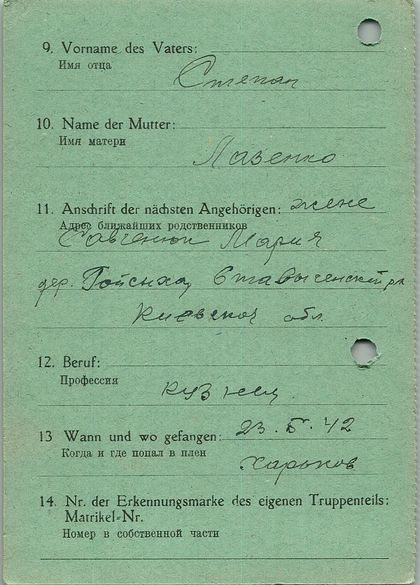 9. Vorname des Vaters:
Имя отца
Степан
10. Name der Mutter:
Имя матери
Лазенко
11. Anschrift der nächsten Angehörigen: жене
Адрес ближайших родственников
Мария
дер. Ставыченский р.
Киевской обл.
12. Beruf:
Профессия
кузнец.
13 Wann und wo gefangen: 23. V. 42
Когда и где попал в плен
Харьков
14. Nr. der Erkennungsmarke des eigenen Truppenteils:
Matrikel-Nr.
Номер в собственной части